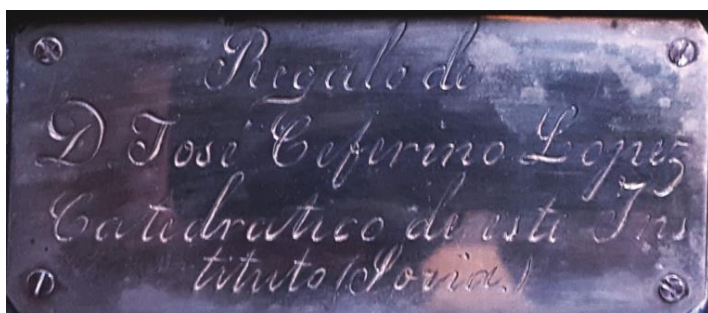 Regalo de
D. José Ceferino Lopez
Catedratico de este Ins
tituto (Soria.)